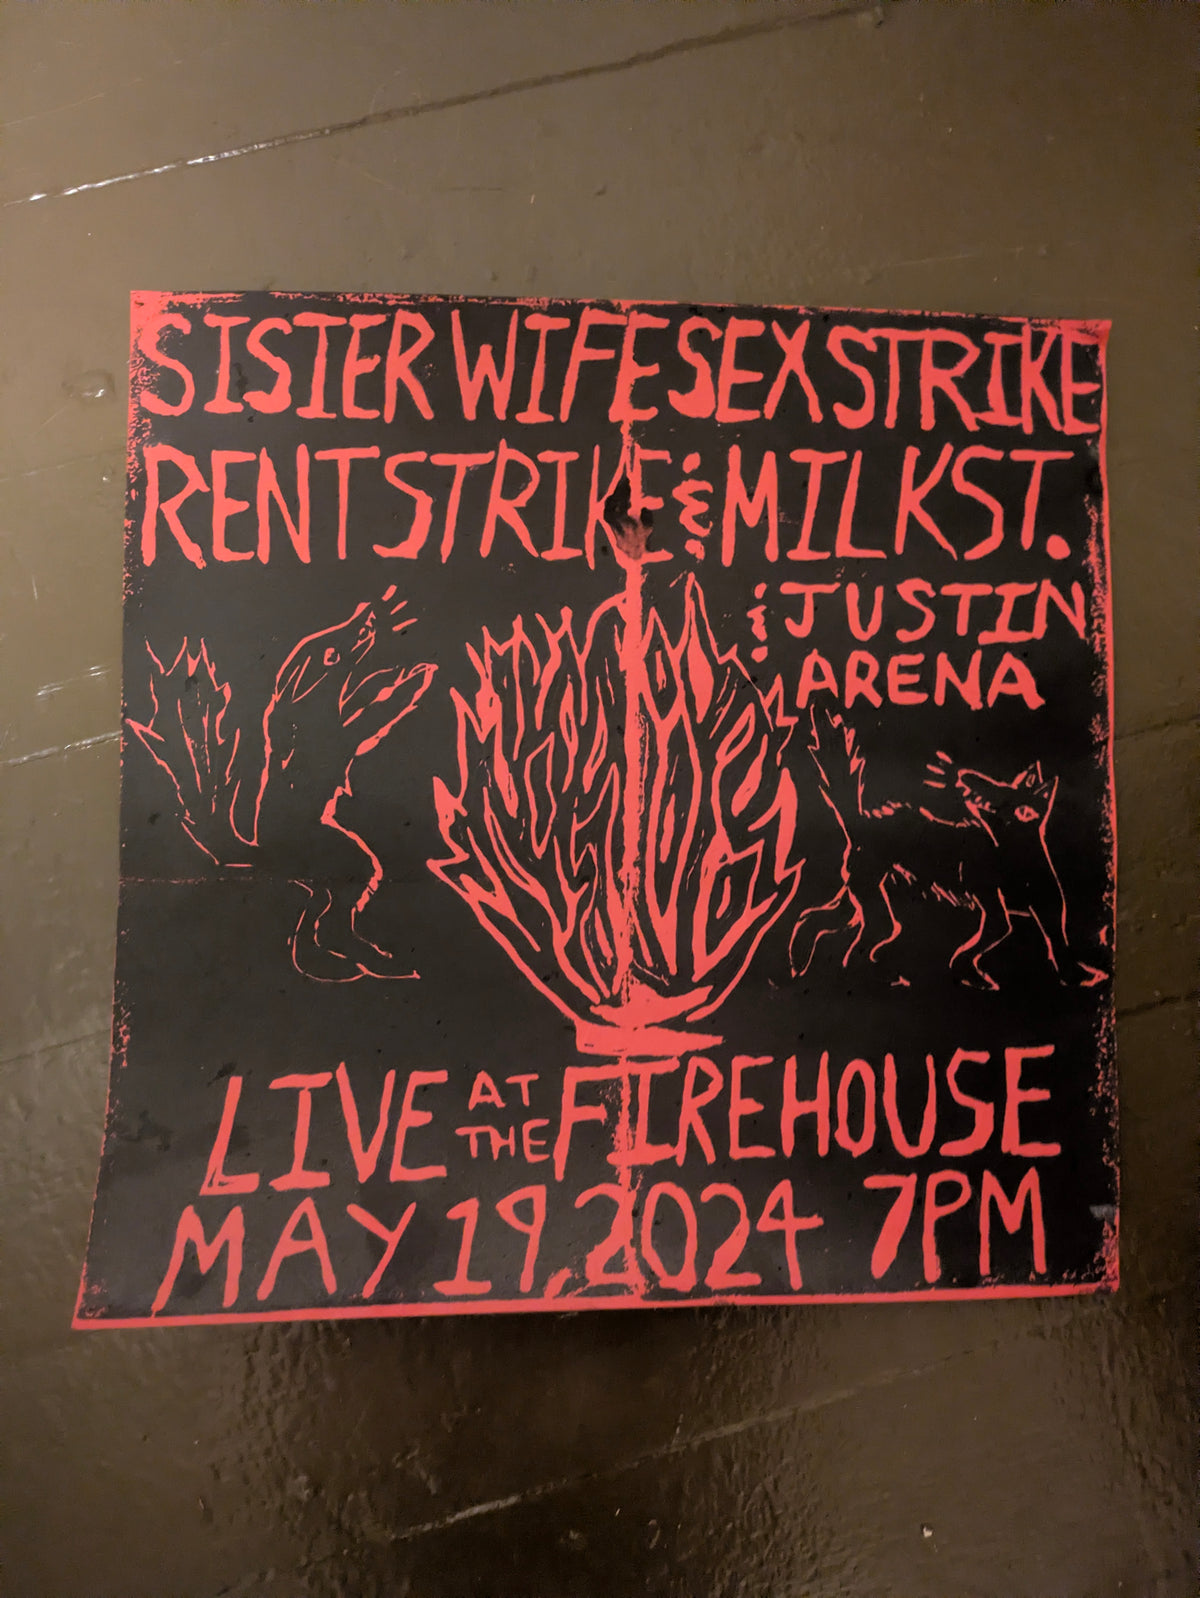 SISTER WIFE SEX STRIKE
RENT STRIKE & MILK ST.
& JUSTIN
ARENA
LIVE AT THE FIREHOUSE
MAY 19, 2024 7PM